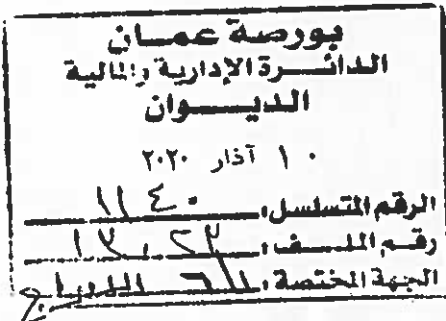 بورصة عمان
الدائرة الإدارية والمالية
الديوان
١٠ آذار ٢٠٢٠
الرقم المتسلسل: ١١٤٠
رقم الملف:
الجهة المختصة: